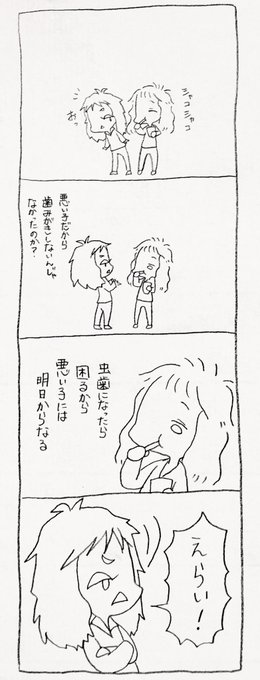 シャコシャコ
おっ
悪い子だから
歯みがきしないんじゃ
なかったのか?
虫歯になったら
困るから
悪い子には
明日からなる
えらい!